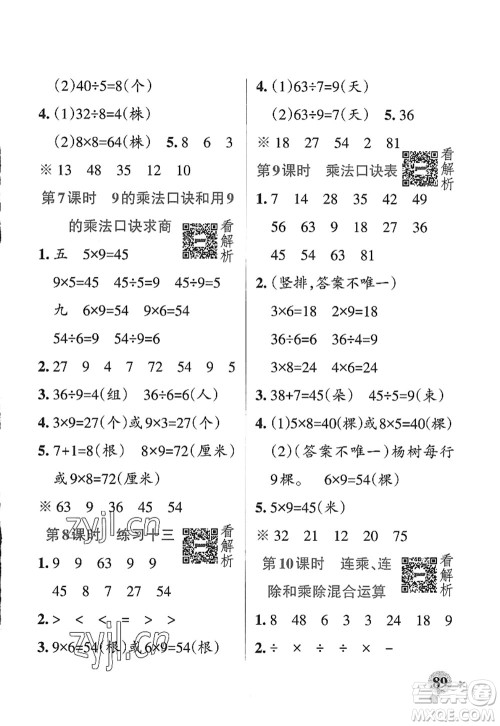 (2)40÷5=8(个)
4.(1)32÷8=4(株)
(2)8×8=64(株) 5.8 6 3
※ 13 48 35 12 10
第7课时 9的乘法口诀和用9
的乘法口诀求商
看解析
1.五 5×9=45
9×5=45 45÷5=9 45÷9=5
九 6×9=54 9×6=54
54÷6=9 54÷9=6
2.27 9 4 7 72 54 9 5
3.36÷9=4(组) 36÷6=6(人)
4.3×9=27(个)或9×3=27(个)
5.7+1=8(根) 8×9=72(厘米)
或9×8=72(厘米)
※ 63 9 36 45 9
第8课时 练习十三
看解析
1.9 9 63 9 9
45 8 54 7
2.> < = < > <
3.9×6=54(根)或6×9=54(根)
4.(1)63÷7=9(天)
(2)63÷9=7(天) 5.36
※ 18 27 54 2 81
第9课时 乘法口诀表
看解析
1.7 14 35 18 42 49
56 16 27 36 48
45 54 63 72 81
2.(竖排,答案不唯一)
3×6=18 2×9=18
36÷6=6 6×9=54
54÷9=6 36÷9=4
3.38+7=45(朵) 45÷5=9(束)
4.(1)5×8=40(棵)或8×5=40(棵)
(2)(答案不唯一)杨树每行
9棵。 6×9=54(棵)
5.5×9=45(米)
※ 32 21 12 54 81
第10课时 连乘、连
除和乘除混合运算
看解析
1.8 48 6 3 8 9
2.÷ ÷ ÷ × ÷ −
89
zyjl.cn
zyjl.cn
答案圈
MXQE.COM